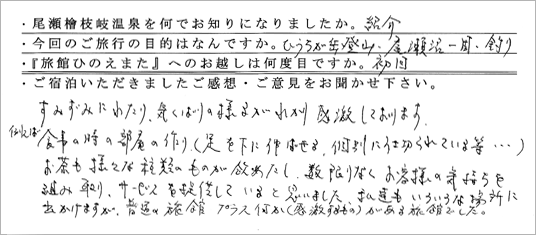 ・尾瀬檜枝岐温泉を何でお知りになりましたか。紹介
・今回のご旅行の目的はなんですか。ひうちが岳登山、尾瀬沼一周、釣り
・『旅館ひのえまた』へのお越しは何度目ですか。初回
・ご宿泊いただきましたご感想・ご意見をお聞かせ下さい。
すみずみにわたり、気くばりの様子がわかり感激しております。
例えば 食事の時の部屋の作り（足を下に伸ばせる、個別に仕切られている等…）
お茶も様々な種類のものが飲めたし、数限りなくお客様の気持ちを
組み取り、サービスを提供していると思いました。私達もいろいろな場所に
出かけますが、普通の旅館プラス何か（感激するもの）がある旅館でした。